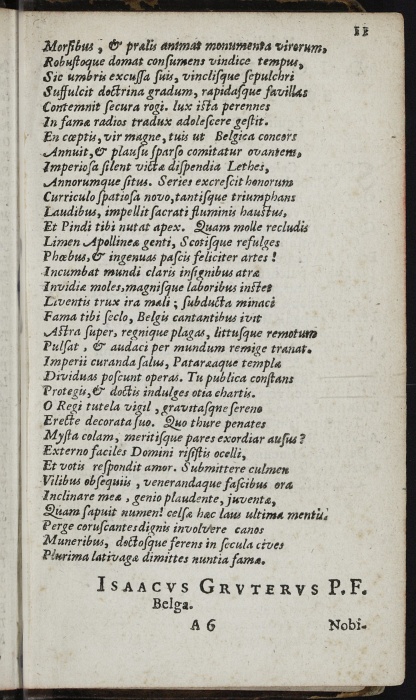 11
Morſibus, & prælis animat monumenta virorum,
Robuſtoque domat conſumens vindice tempus,
Sic umbris excuſſa ſuis, vincliſque ſepulchri
Suffulcit doctrina gradum, rapidaſque favillas
Contemnit ſecura rogi. lux iſta perennes
In famæ radios tradux adoleſcere geſtit.
En cœptis, vir magne, tuis ut Belgica concors
Annuit, & plauſu ſparſo comitatur ovantem,
Imperioſa ſilent victæ diſpendia Lethes,
Annorumque ſitus. Series excreſcit honorum
Curriculo ſpatioſa novo, tantiſque triumphans
Laudibus, impellit ſacrati fluminis hauſtus,
Et Pindi tibi nutat apex. Quam molle recludis
Limen Apollineæ genti, Scotiſque refulges
Phœbus, & ingenuas paſcis feliciter artes!
Incumbat mundi claris inſignibus atræ
Invidiæ moles, magniſque laboribus inſtet
Liventis trux ira mali; ſubducta minaci
Fama tibi ſeclo, Belgis cantantibus ivit
Aſtra ſuper, regnique plagas, littuſque remotum
Pulſat, & audaci per mundum remige tranat.
Imperii curanda ſalus, Pataræaque templa
Dividuas poſcunt operas. Tu publica conſtans
Protegis, & doctis indulges otia chartis.
O Regi tutela vigil, gravitaſque ſereno
Erecte decorata ſuo. Quo thure penates
Myſta colam, meritiſque pares exordiar auſus?
Externo faciles Domini riſiſtis ocelli,
Et votis reſpondit amor. Submittere culmen
Vilibus obſequiis, venerandaque faſcibus ora
Inclinare meæ, genio plaudente, juventæ,
Quam ſapuit numen! celſæ hæc laus ultima mentis.
Perge coruſcantes dignis involvere canos
Muneribus, doctoſque ferens in ſecula cives
Plurima lativagæ dimittes nuntia famæ.
ISAACVS GRVTERVS P.F.
Belga.
A 6
Nobi-